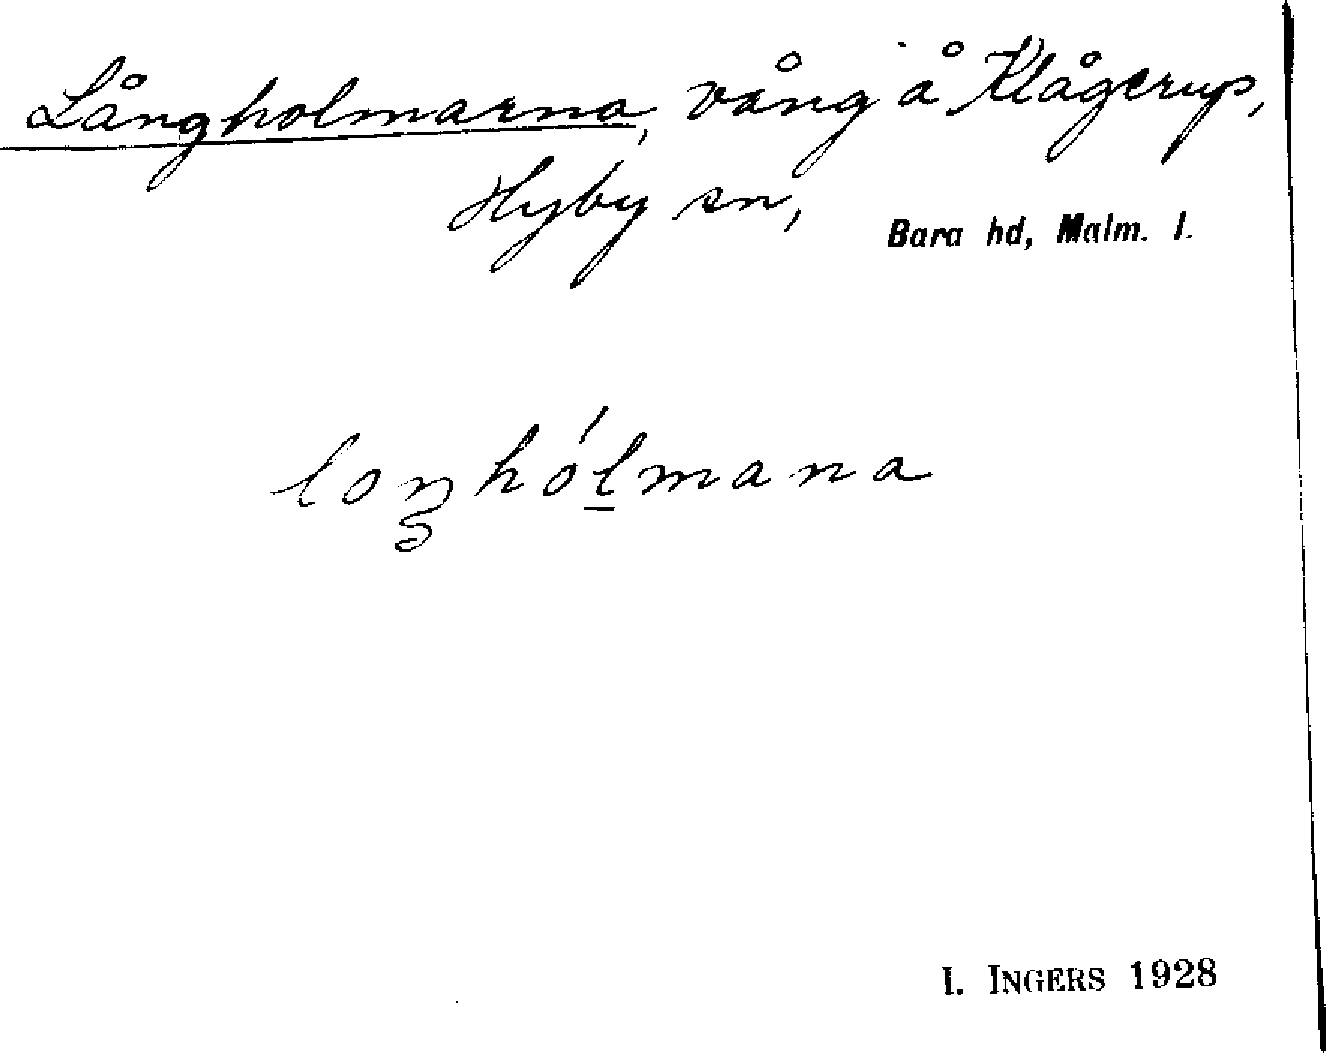 Långholmarna, vång å Klågerup,
Hyby sn, Bara hd, Malm. l.
loŋhól̠mana
I. INGERS 1928